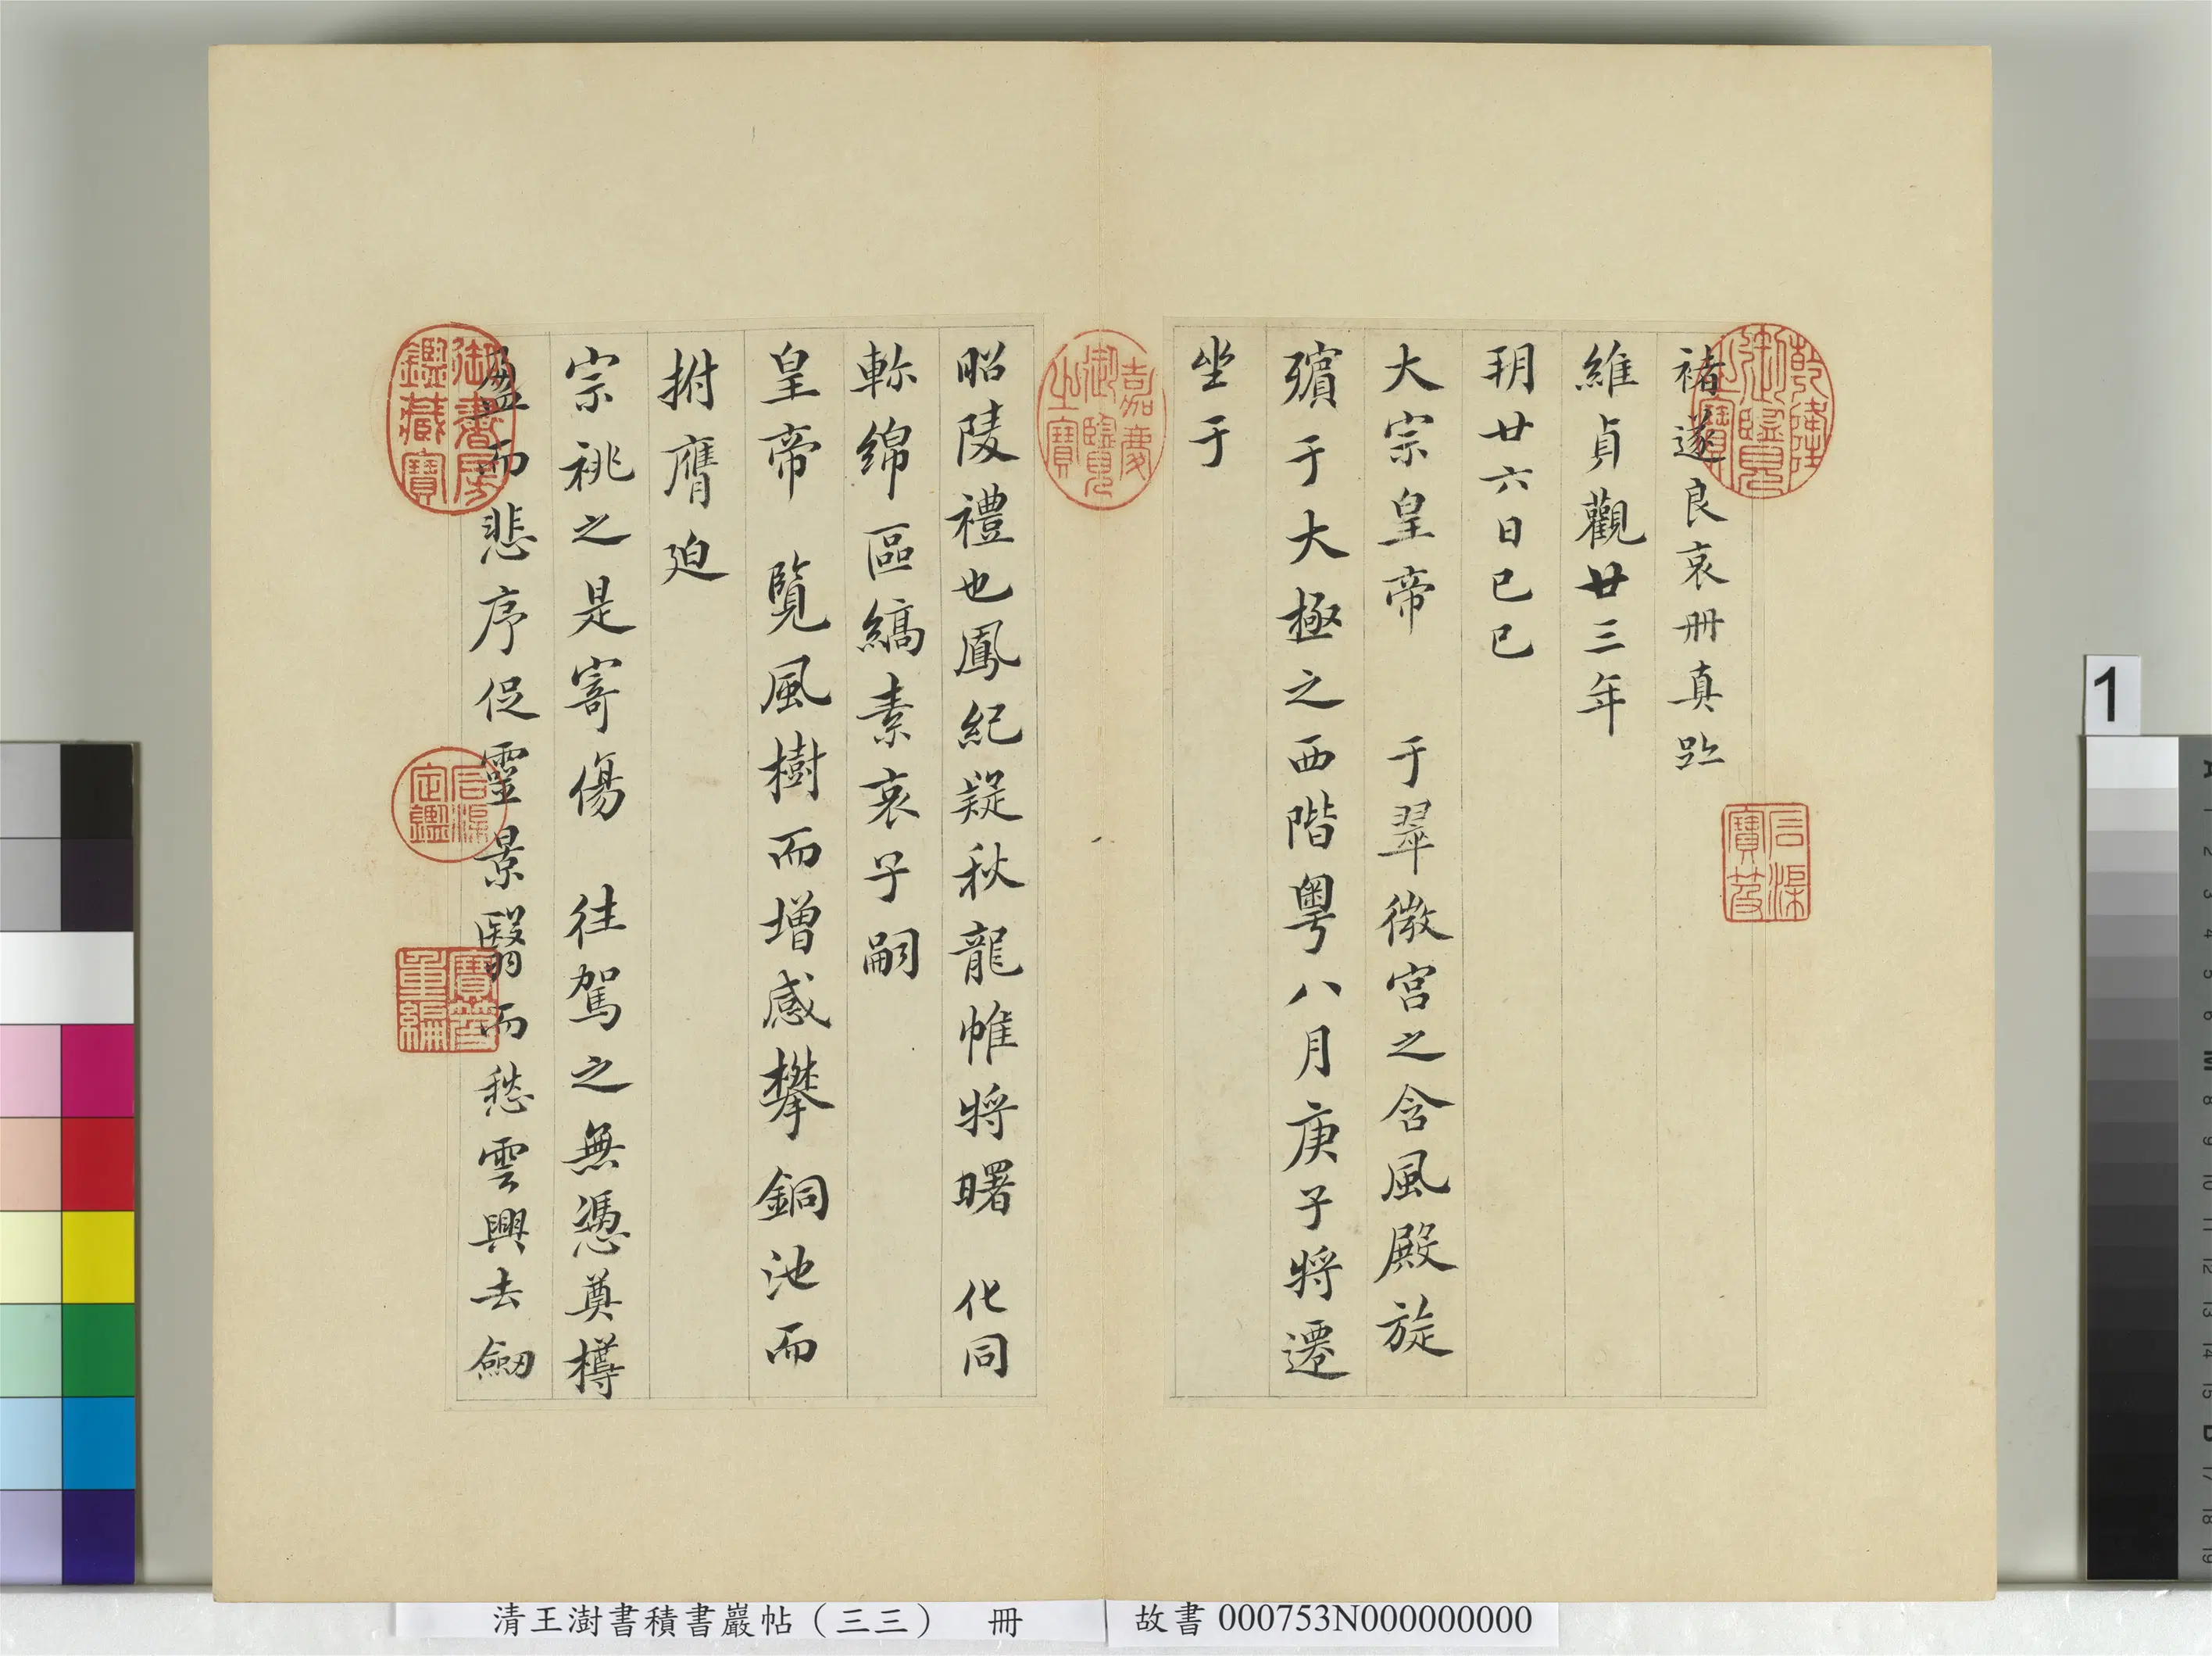 褚遂良哀冊真跡
維貞觀廿三年
玥廿六日己巳
大宗皇帝 于翠微宮之含風殿旋
殯于大極之西階粵八月庚子將遷
坐于
昭陵禮也鳳紀疑秋龍帷將曙 化同
軫綿區縞素哀子嗣
皇帝 覽風樹而增感攀銅池而
拊膺迫
宗祧之是寄傷 往駕之無憑奠樽
盈而悲序促靈景翳而愁雲興去劔
乾隆御覽之寶
石渠寶笈
嘉慶御覽之寶
御書房鑑藏寶
石渠定鑑
寶笈重編
清王澍書積書巖帖（三三） 冊
故書 000753N000000000
1